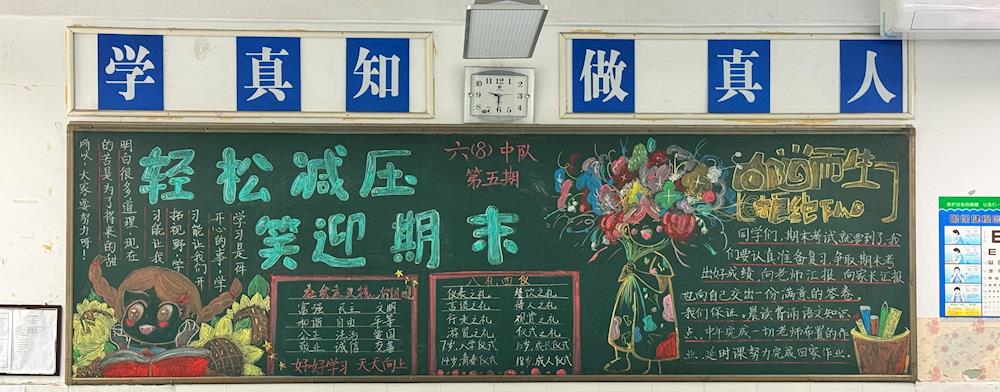 学真知
做真人
六(8)中队
第五期
轻松减压
笑迎期末
向阳而生
学习是件
开心的事,学
习能让我们开
拓视野,学
习能让我
明白很多道理,现在
的苦是为了将来的甜
所以,大家要努力呀!
社会主义核心价值观
富强 民主 文明
和谐 自由 平等
公正 法治 爱国
敬业 诚信 友善
好好学习 天天向上
八礼四仪
仪表之礼。 餐饮之礼。
言谈之礼。 待人之礼。
行走之礼。 观赏之礼。
游览之礼。 仪式之礼。
7岁,入学仪式 10岁,成长仪式
14岁,青春仪式 18岁,成人仪式
同学们,期末考试就要到了,我
们要认真准备复习,争取期末考
出好成绩,向老师汇报,向家长汇报
也向自己交出一份满意的答卷。
我们保证,晨读背诵语文知识
点,中午完成一切老师布置的作
业,延时课努力完成回家作业。